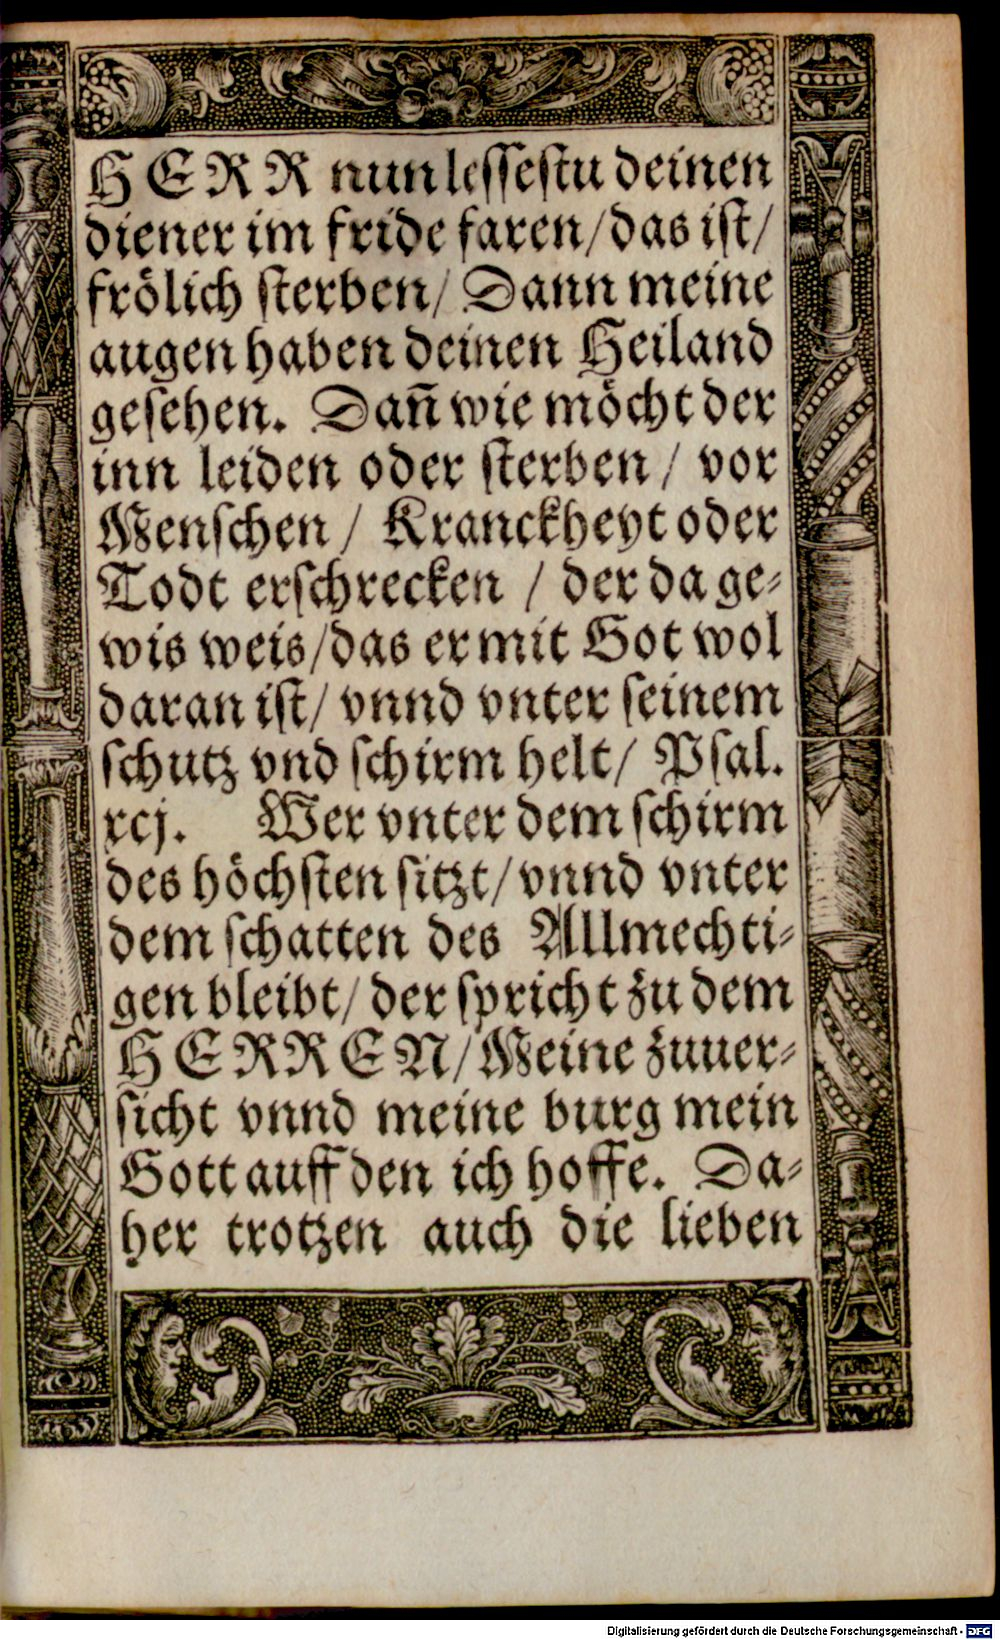 HERR nun lessestu deinen
diener im fride faren/das ist/
frölich sterben/ Dann meine
augen haben deinen Heiland
gesehen. Dañ wie möcht der
inn leiden oder sterben / vor
Menschen / Kranckheyt oder
Todt erschrecken / der da ge⸗
wis weis/das er mit Got wol
daran ist/ vnnd vnter seinem
schutz vnd schirm helt/ Psal.
xcj. Wer vnter dem schirm
des höchsten sitzt/vnnd vnter
dem schatten des Allmechti⸗
gen bleibt/ der spricht zu dem
HERREN/Meine zuuer⸗
sicht vnnd meine burg mein
Gott auff den ich hoffe. Da⸗
her trotzen auch die lieben
Digitalisierung gefördert durch die Deutsche Forschungsgemeinschaft - DFG